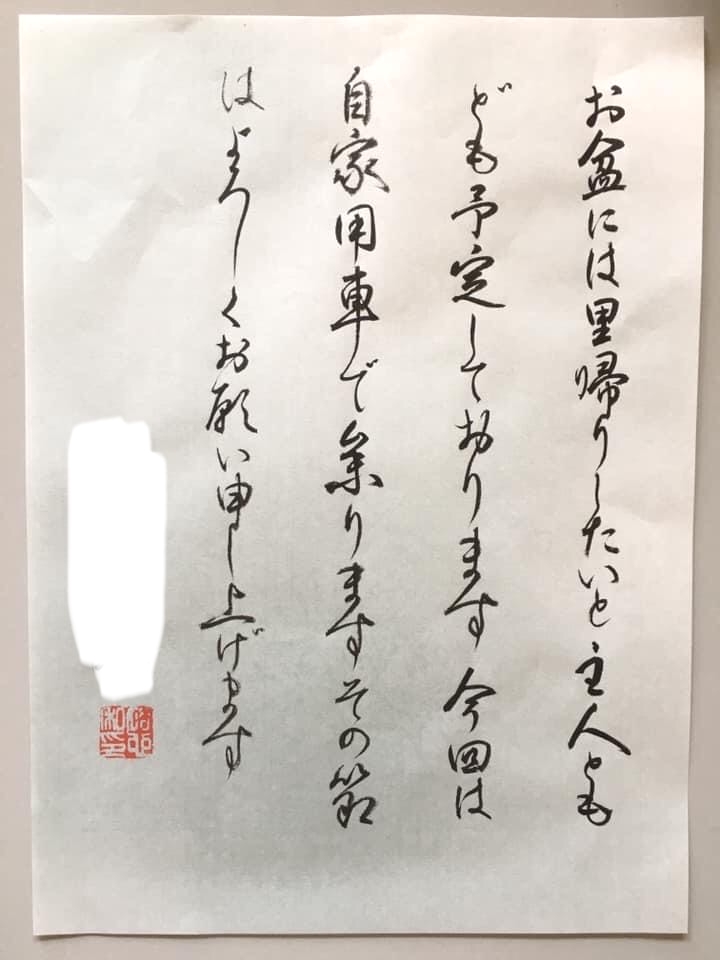 お盆には里帰りしたいと主人とも
ども予定しております今回は
自家用車で参りますその節
はよろしくお願い申し上げます